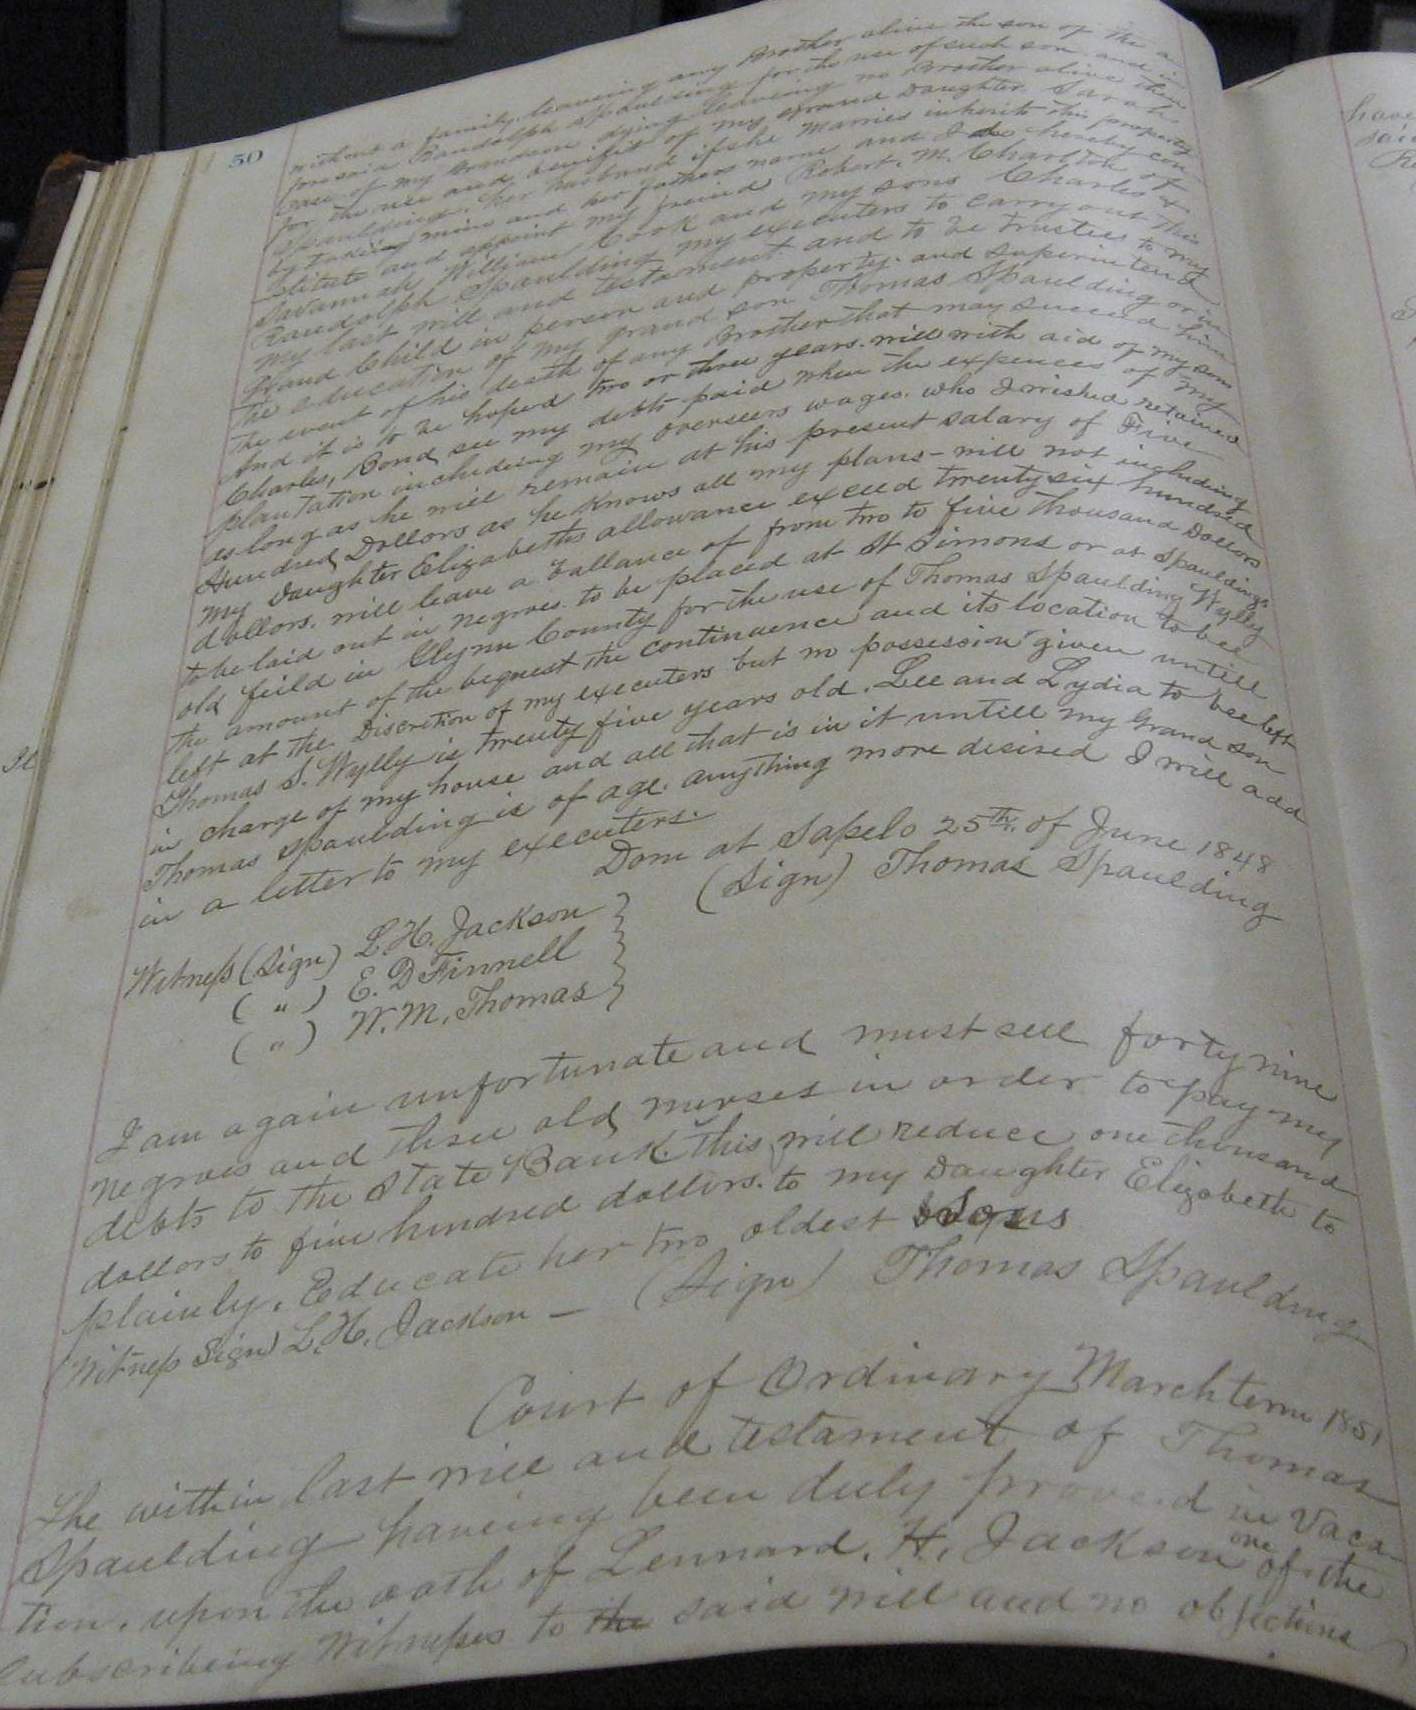 50
without a family, leaving any Brother alive the son of the a-
foresaid Randolph Spaulding for the use of such son and in
case of my Grandson dying leaving no Brother alive then
for the use and benefit of my Grand Daughter Sarah
Spaulding, her husband if she Marries inherits this property
by taking mine and her fathers name and I do hereby con-
stitute and appoint my freind Robert. M. Charlton of
Savannah William Cook and my sons Charles &
Randolph Spaulding my executers to carry out this
my last will and testament and to be trustees to my
Grand Child in person and property. and superintend
the education of my grand son Thomas Spaulding or in
the event of his death of any Brother that may succeed him
And it is to be hoped two or three years will with aid of my son
Charles, Bond see my debts paid when the expences of my
plantation including my overseers wages. who I wished retained
as long as he will remain at his present salary of Five
Hundred Dollars as he knows all my plans - will not including
my Daughter Elizabeths allowance exceed twenty six hundred
dollors. will leave a ballance of from two to five thousand Dollors
to be laid out in negroes. to be placed at St Simons or at Spauldings
old feild in Glynn County for the use of Thomas Spaulding Wylly
the amount of the bequest the continuence and its location to bee
left at the Discretion of my executers but no possession given untill
Thomas S. Wylly is twenty five years old. Lee and Lydia to bee left
in charge of my house and all that is in it untill my Grand son
Thomas Spaulding is of age. anything more desired I will add
in a letter to my executers.
Done at Sapelo 25th. of June 1848
(Sign) Thomas Spaulding
Witness (Sign) L. H. Jackson
( " ) E. D Finnell
( " ) W. M. Thomas
I am again unfortunate and must sell forty nine
negroes and these old nurses in order to pay my
debts to the State Bank. this will reduce one thousand
dollors to five hundred dollars. to my Daughter Elizabeth to
plainly. Educate her two oldest Sons
Witness Sign) L. H. Jackson — (Sign) Thomas Spaulding
Court of Ordinary March term 1851
The within last will and testament of Thomas
Spaulding having been duly proved in Vaca-
tion. upon the oath of Lennard. H. Jackson one of the
subscribing Witnesses to the said will and no objections